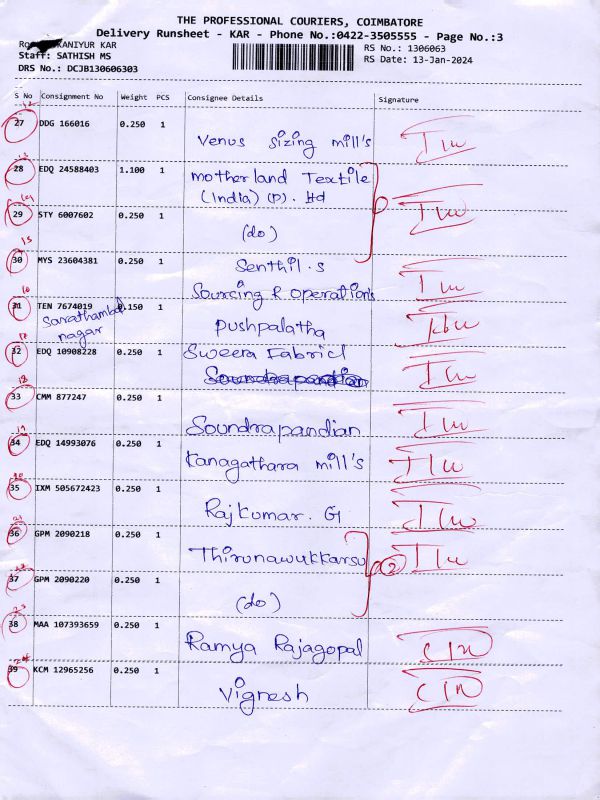 THE PROFESSIONAL COURIERS, COIMBATORE
Delivery Runsheet - KAR - Phone No.:0422-3505555 - Page No.:3
KANIYUR KAR
RS No.: 1306063
Staff: SATHISH MS
RS Date: 13-Jan-2024
DRS No.: DCJB130606303
S No Consignment No Weight PCS Consignee Details Signature
27 DDG 166016 0.250 1
Venus sizing mill's
28 EDQ 24588403 1.100 1 Motherland Textile
(India) (P). Ltd
29 STY 6007602 0.250 1
(do)
15
30 MYS 23604381 0.250 1 Senthil.s
Sourcing & Operation's
31 TEN 7674019 0.150 1
Sarathambal nagar
Pushpalatha
32 EDQ 10908228 0.250 1 Sweera Fabric
Soundrapandian
18
33 CMM 877247 0.250 1
Soundrapandian
19
34 EDQ 14993076 0.250 1 Kanagathara mill's
20
35 IXM 505672423 0.250 1
Rajkumar. G
21
36 GPM 2090218 0.250 1
Thirunawukkarsu
2
37 GPM 2090220 0.250 1
(do)
23
38 MAA 107393659 0.250 1
Ramya Rajagopal
39 KCM 12965256 0.250 1
Vignesh